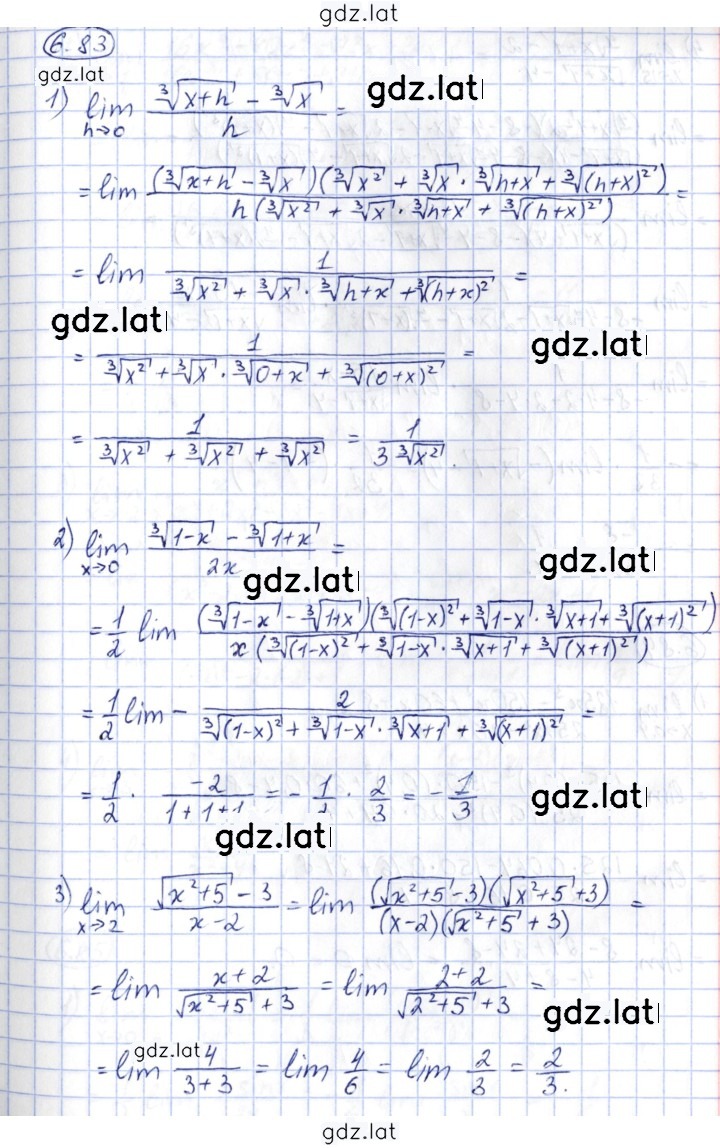 gdz.lat
6.83
gdz.lat
1) lim h→0 (∛(x+h) - ∛x)/h = gdz.lat
= lim ((∛(x+h) - ∛x)(∛(x²) + ∛x · ∛(h+x) + ∛((h+x)²)))/(h(∛(x²) + ∛x · ∛(h+x) + ∛((h+x)²))) =
= lim 1/(∛(x²) + ∛x · ∛(h+x) + ∛((h+x)²)) =
gdz.lat
= 1/(∛(x²) + ∛x · ∛(0+x) + ∛((0+x)²)) = gdz.lat
= 1/(∛(x²) + ∛(x²) + ∛(x²)) = 1/(3∛(x²)).
2) lim x→0 (∛(1-x) - ∛(1+x))/(2x) = gdz.lat
gdz.lat
= 1/2 lim ((∛(1-x) - ∛(1+x))(∛((1-x)²) + ∛(1-x) · ∛(x+1) + ∛((x+1)²)))/(x(∛((1-x)²) + ∛(1-x) · ∛(x+1) + ∛((x+1)²)))
= 1/2 lim - 2/(∛((1-x)²) + ∛(1-x) · ∛(x+1) + ∛((x+1)²)) =
= 1/2 · (-2)/(1+1+1) = - 1/2 · 2/3 = - 1/3 gdz.lat
gdz.lat
3) lim x→2 (√(x²+5) - 3)/(x-2) = lim ((√(x²+5) - 3)(√(x²+5) + 3))/((x-2)(√(x²+5) + 3)) =
= lim (x+2)/(√(x²+5) + 3) = lim (2+2)/(√(2²+5) + 3) =
gdz.lat
gdz.lat
= lim 4/(3+3) = lim 4/6 = lim 2/3 = 2/3.
gdz.lat